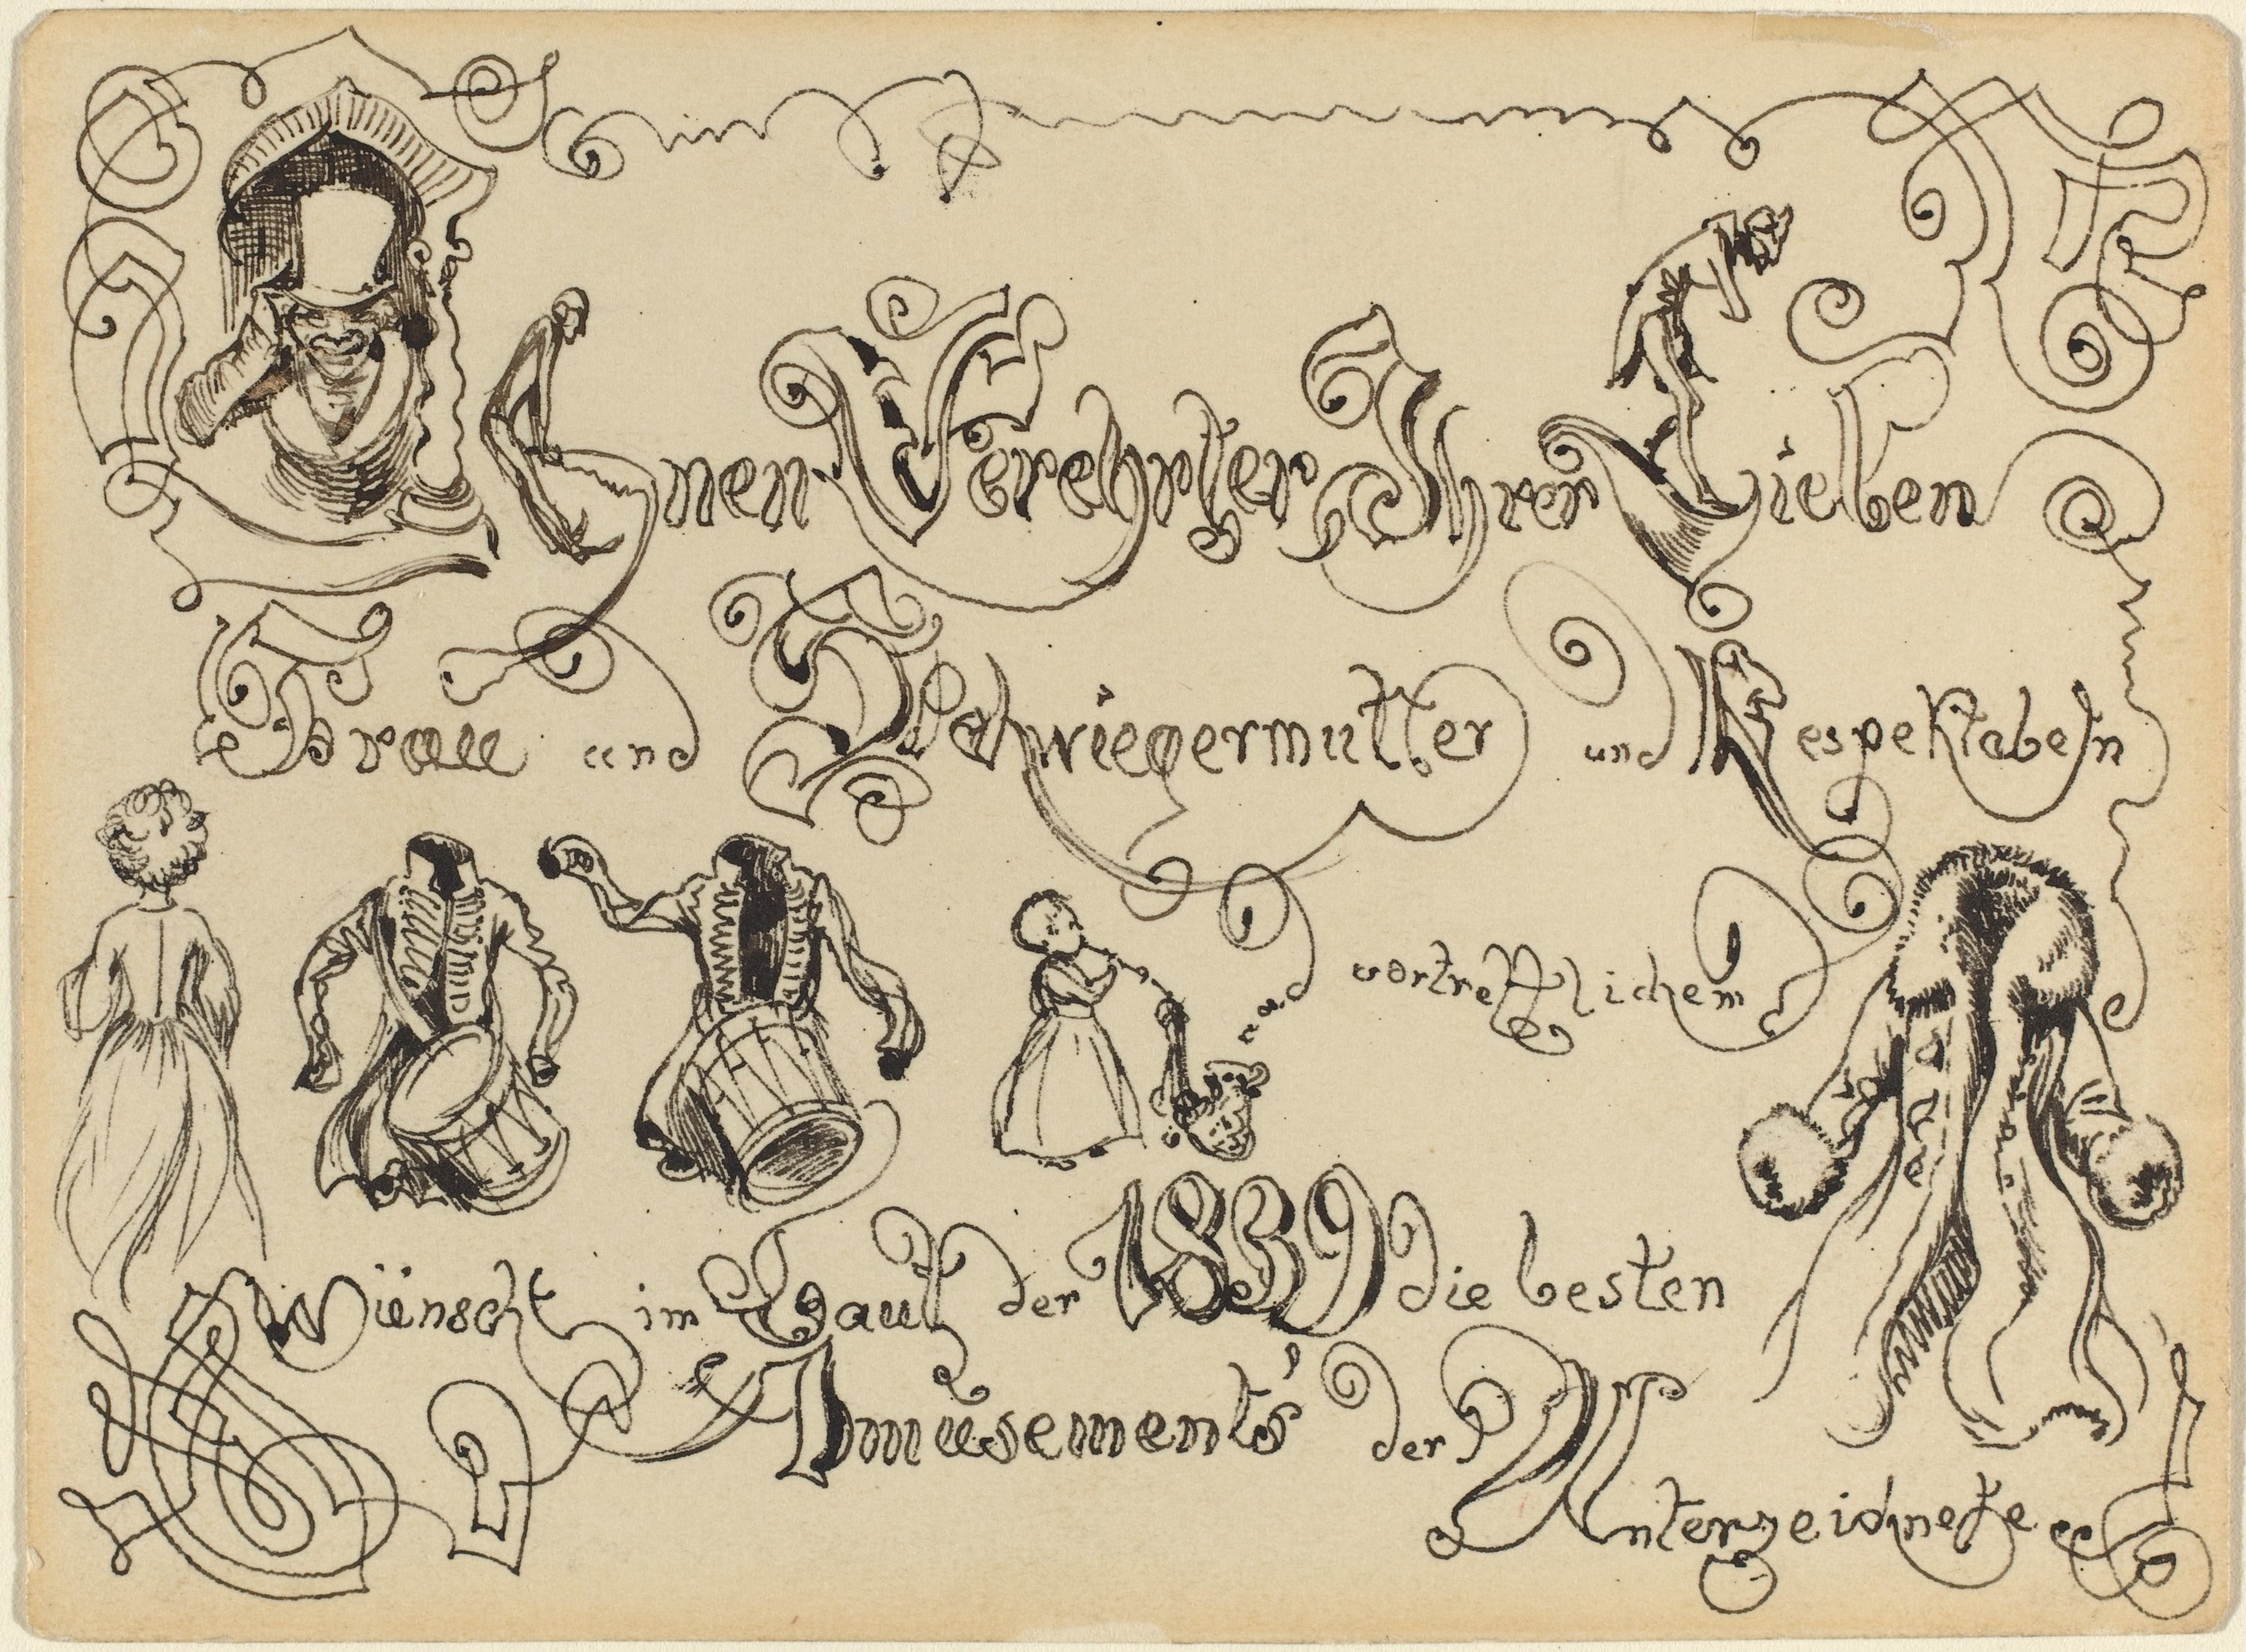 Ihnen Verehrter Ihrer Lieben
Frau und Schwiegermutter und Respektabeln
und vortrefflichem
Wünscht im Lauf der 1839 die besten
Amusement's der Unterzeichnete